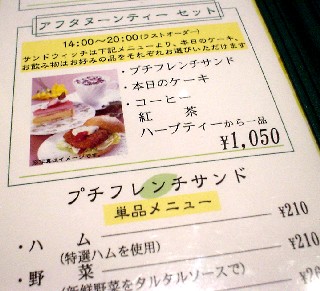 アフタヌーンティー セット
14:00〜20:00(ラストオーダー)
サンドウィッチは下記メニューより、本日のケーキ、
お飲み物はお好みの品をそれぞれお選びいただけます
・プチフレンチサンド
・本日のケーキ
・コーヒー
紅 茶
ハーブティーから一品
※写真はイメージです。
¥1,050
プチフレンチサンド
単品メニュー
・ハ ム ¥210
(特選ハムを使用)
・野 菜 ¥210
(新鮮野菜をタルタルソースで)